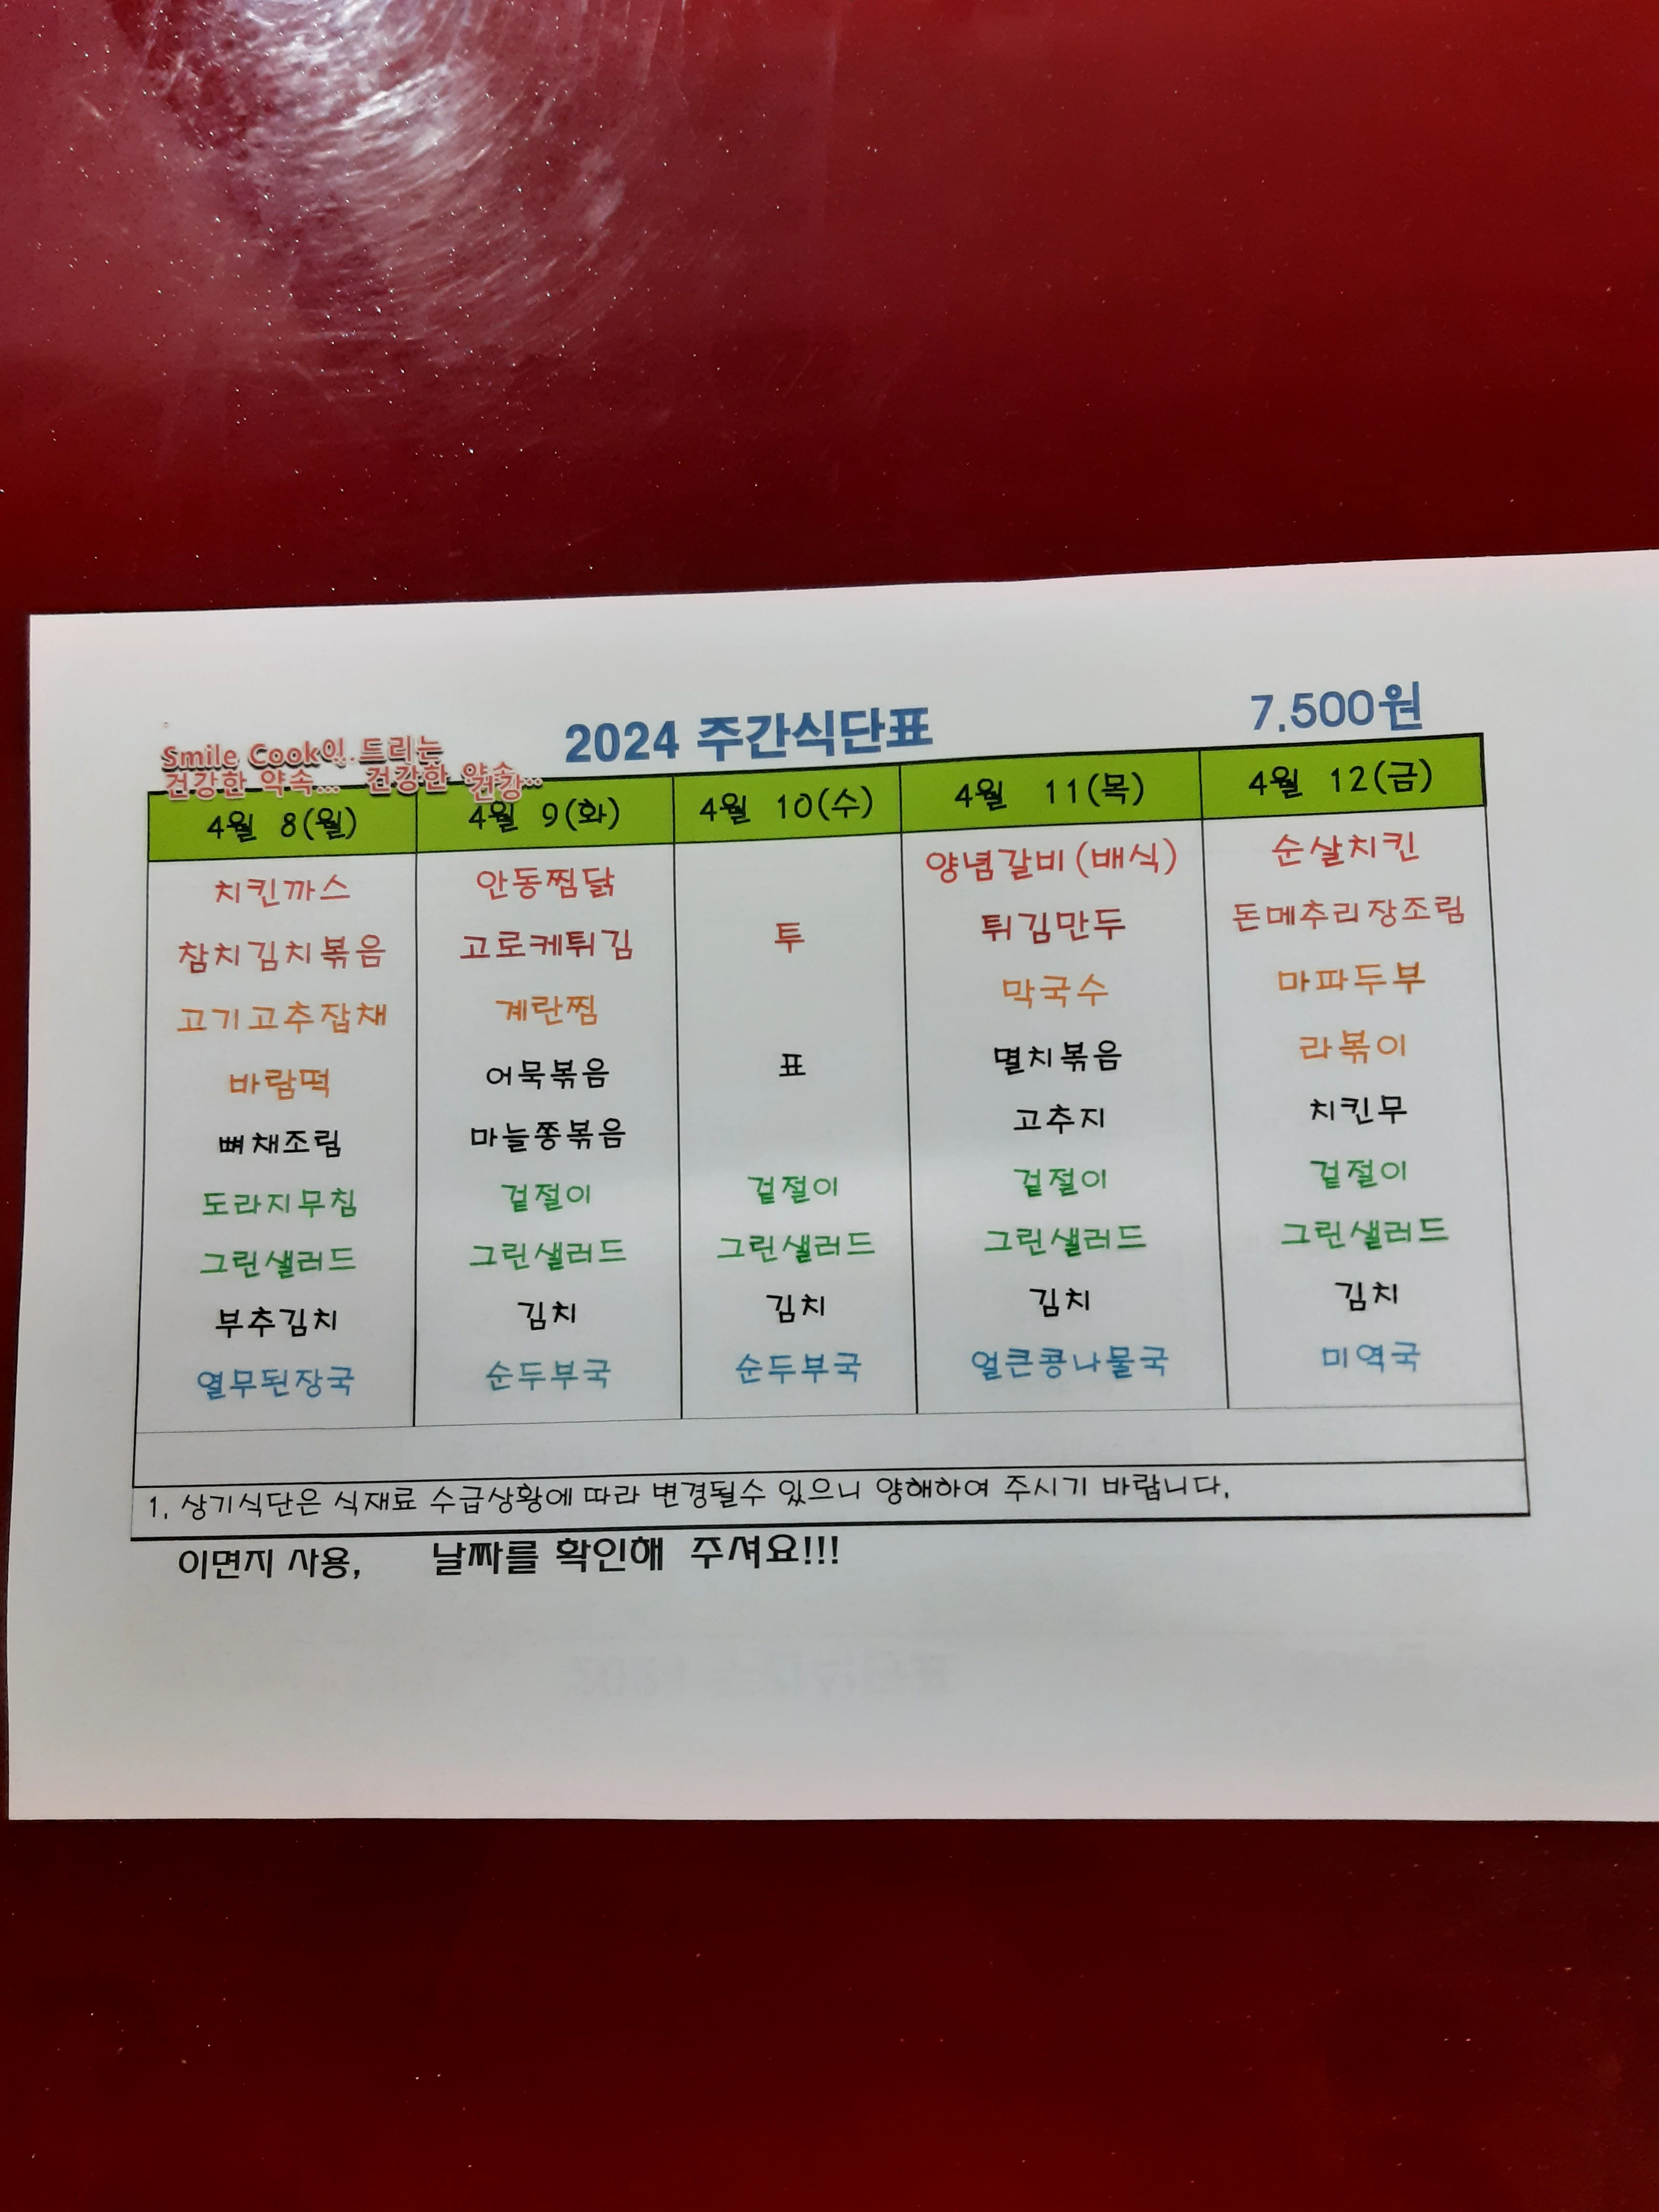 2024 주간식단표
7.500원
Smile Cook이 드리는
건강한 약속... 건강한 약속...
건강
4월 8(월) 4월 9(화) 4월 10(수) 4월 11(목) 4월 12(금)
치킨까스 안동찜닭 양념갈비(배식) 순살치킨
참치김치볶음 고로케튀김 투 튀김만두 돈메추리장조림
고기고추잡채 계란찜 막국수 마파두부
바람떡 어묵볶음 표 멸치볶음 라볶이
뼈채조림 마늘쫑볶음 고추지 치킨무
도라지무침 겉절이 겉절이 겉절이 겉절이
그린샐러드 그린샐러드 그린샐러드 그린샐러드 그린샐러드
부추김치 김치 김치 김치 김치
열무된장국 순두부국 순두부국 얼큰콩나물국 미역국
1. 상기식단은 식재료 수급상황에 따라 변경될수 있으니 양해하여 주시기 바랍니다.
이면지 사용, 날짜를 확인해 주셔요!!!